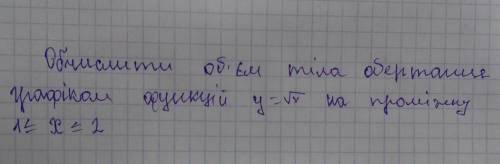 Обчислити об'єм тіла обертання
графіком функцій y=√x на проміжку
1 ≤ x ≤ 2